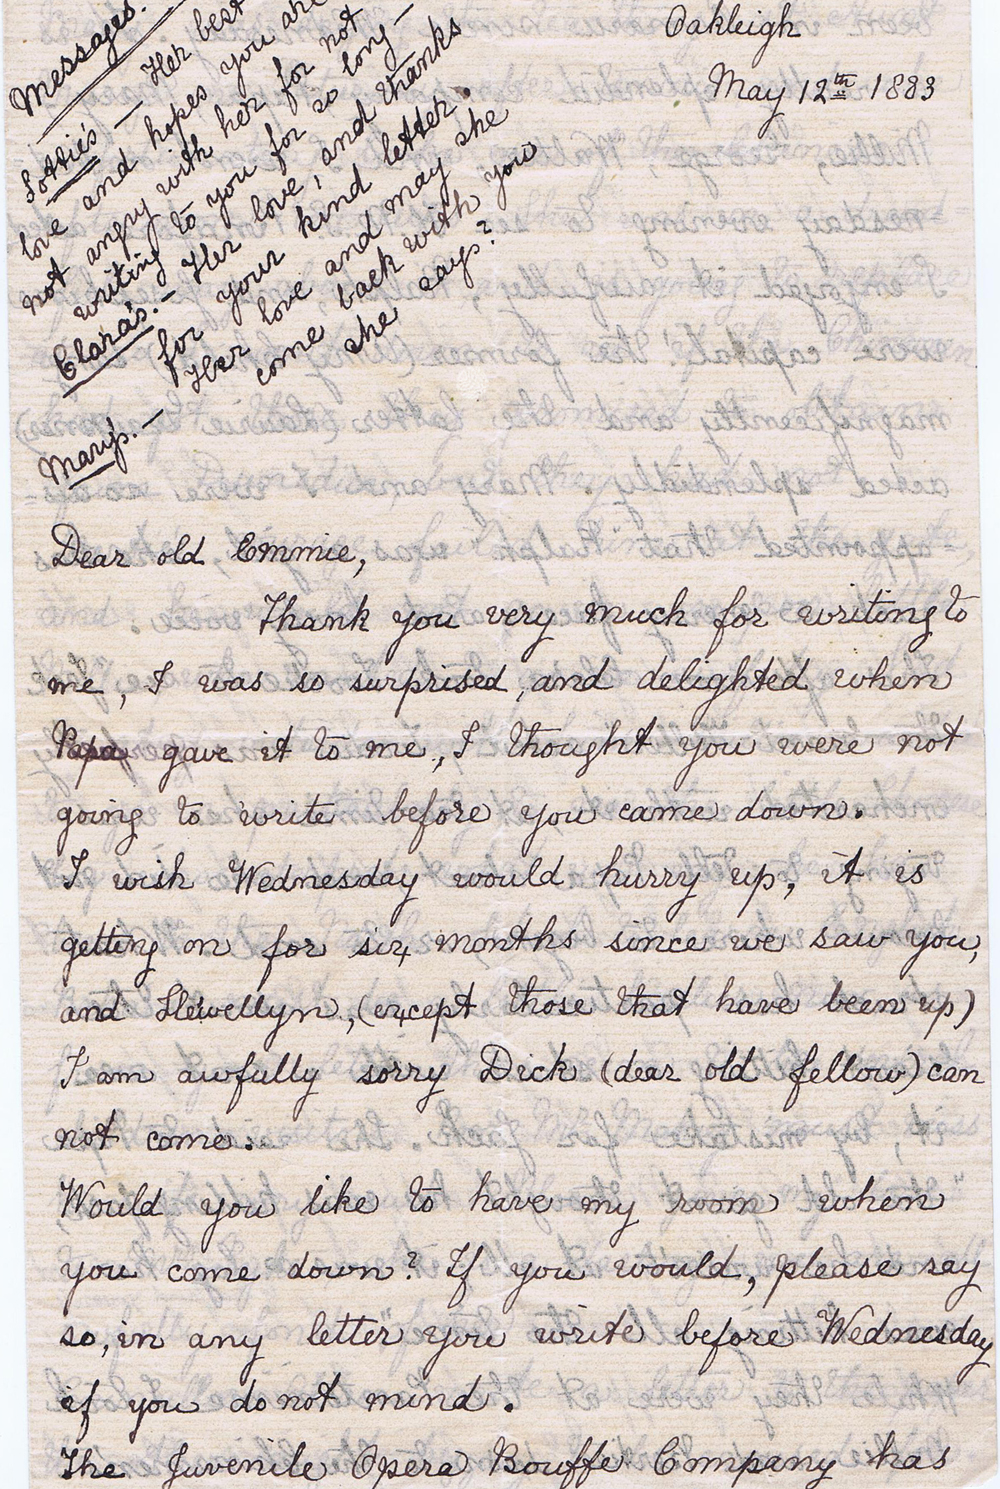 Oakleigh
May 12th 1883
Messages.
Lottie's — Her best
love and hopes you are
not angry with her for not
writing to you for so long —
Clara's. — Her love, and thanks
for your kind letter.
Mary's. — Her love and may she
come back with you
she says?
Dear old Emmie,
Thank you very much for writing to
me, I was so surprised, and delighted when
Papa gave it to me, I thought you were not
going to write before you came down.
I wish Wednesday would hurry up, it is
getting on for six months since we saw you,
and Llewellyn, (except those that have been up)
I am awfully sorry Dick (dear old fellow) can
not come.
Would you like to have my room when
you come down? If you would, please say
so, in any letter you write before Wednesday
if you do not mind.
The Juvenile Opera Bouffe Company has